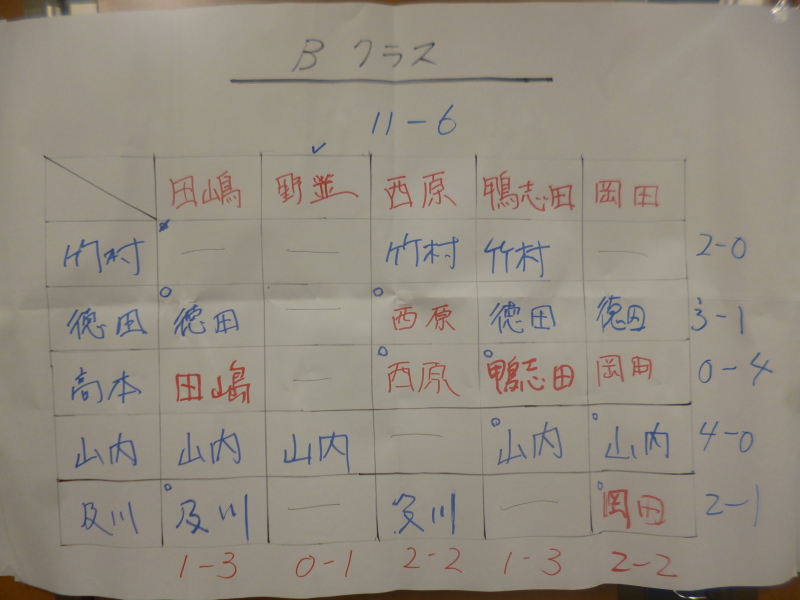 B クラス
11-6
田嶋 野並 西原 鴨志田 岡田
竹村 — — 竹村 竹村 — 2-0
徳田 徳田 — 西原 徳田 徳田 3-1
高本 田嶋 — 西原 鴨志田 岡田 0-4
山内 山内 山内 — 山内 山内 4-0
及川 及川 — 及川 — 岡田 2-1
1-3 0-1 2-2 1-3 2-2